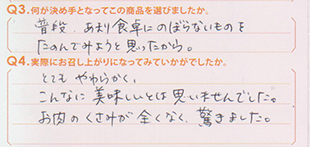 Q3.何が決め手となってこの商品を選びましたか。
普段、あまり食卓にのぼらないものを
たのんでみようと思ったから。
Q4.実際にお召し上がりになってみていかがでしたか。
とてもやわらかく、
こんなに美味しいとは思いませんでした。
お肉のくさみが全くなく、驚きました。